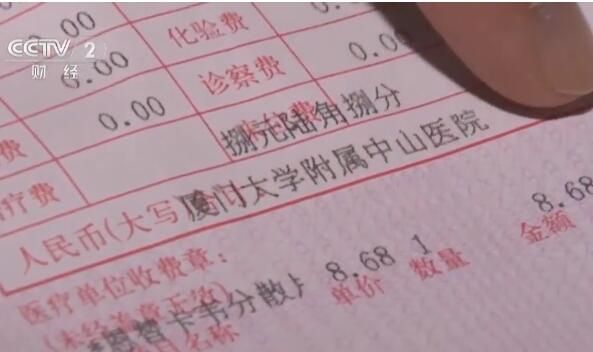 CCTV 2
财经
0.00 化验费
0.00 诊察费 0.00
费 0.00
捌元陆角捌分
治疗费
人民币(大写) 厦门大学附属中山医院
医疗单位收费章:
(未经盖章无效)
恩替卡韦分散片 8.68 1 8.68
名称 单价 数量 金额